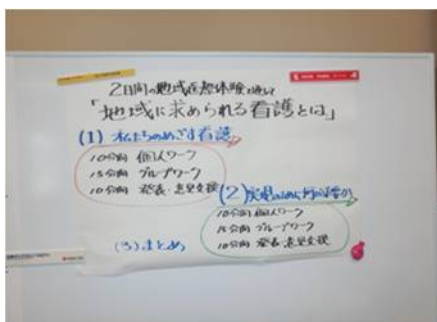 2日間の地域医療体験を通して
「地域に求められる看護とは」
(1) 私たちのめざす看護
10分間 個人ワーク
15分間 グループワーク
10分間 発表・意見交換
(2) 実現のために何が必要か
10分間 個人ワーク
15分間 グループワーク
10分間 発表・意見交換
(3) まとめ